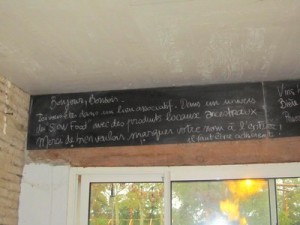 Bonjour, Bonsoir.
Bienvenue dans un lieu associatif. Dans un univers
du Slow Food avec des produits locaux ancestraux
Merci de bien vouloir marquer votre nom à l'entrée,
il faut être adhérent
Vins